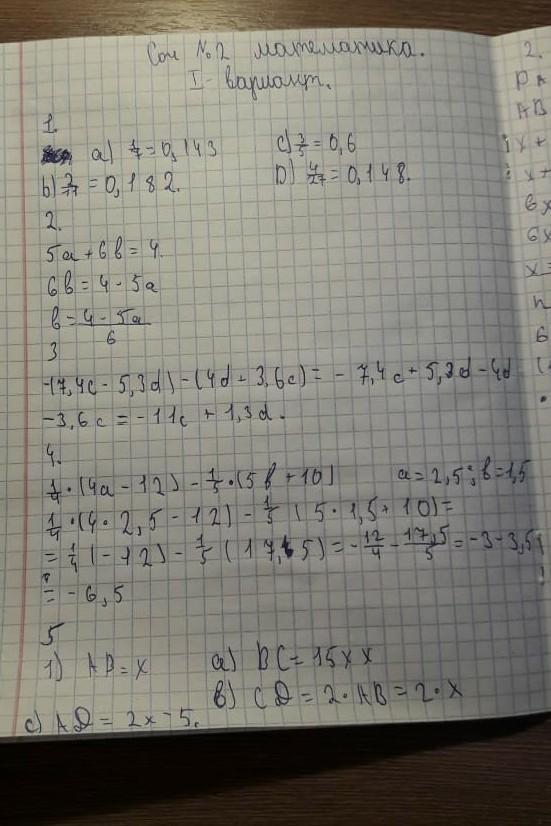 Соч №2 математика.
I - вариант.
1.
a) 1/7 = 0,143 c) 3/5 = 0,6
b) 2/11 = 0,182. D) 4/27 = 0,148.
2.
5a + 6b = 4.
6b = 4 - 5a
b = 4 - 5a / 6
3
-(7,4c - 5,3d) - (4d + 3,6c) = - 7,4c + 5,3d - 4d
-3,6c = -11c + 1,3d.
4.
1/4 · (4a - 12) - 1/5 · (5b + 10) a = 2,5; b = 1,5
1/4 · (4 · 2,5 - 12) - 1/5 (5 · 1,5 + 10) =
= 1/4 (-12) - 1/5 (17,5) = - 12/4 - 17,5/5 = -3 - 3,5
= - 6,5
5
1) AB = x a) BC = 15x x
в) CD = 2 · AB = 2 · x
c) AD = 2x - 5.
2.
AB
x +
x +
6x
6x
x =
6